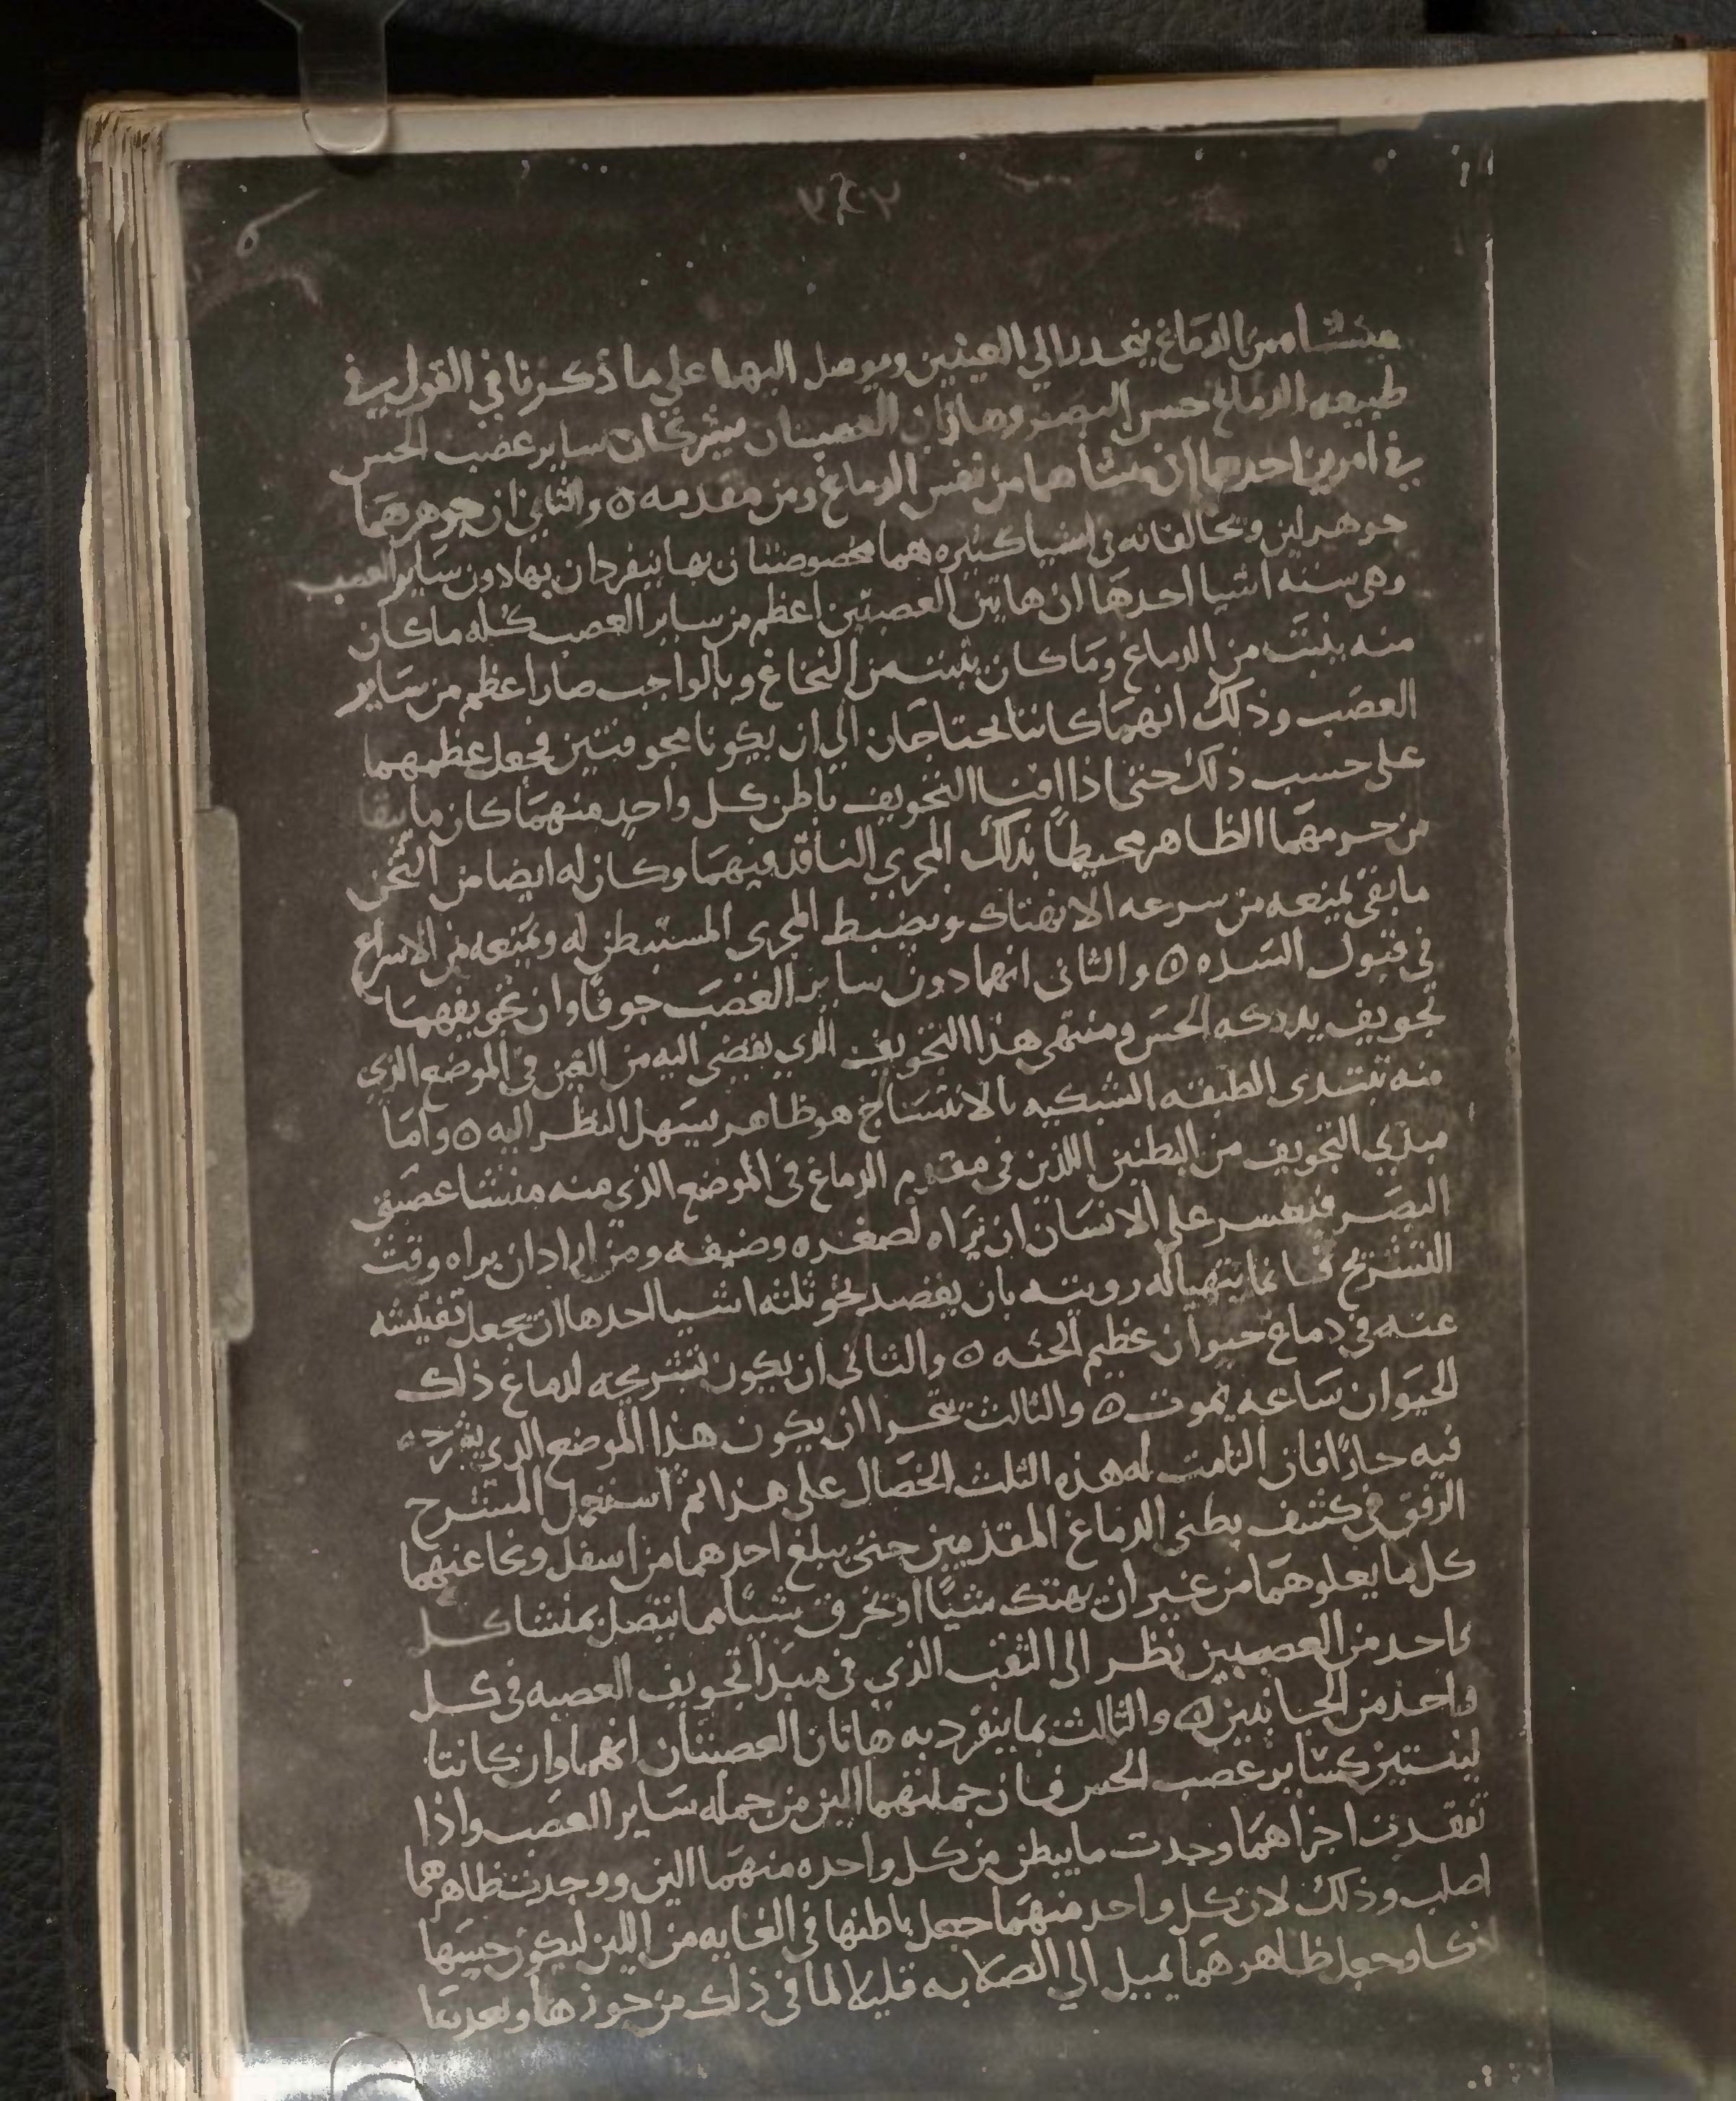 منشاه من الدماغ ينحدر الي العينين ويوصل اليهما علي ما ذكرنا في القول في
طبيعه الدماغ حس البصر وهاتان العصبتان يشركان ساير عصب الحس
في امرين احدهما ان منشاهما من نفس الدماغ ومن مقدمه ٥ والثاني ان جوهرهما
جوهر لين ويخالفانه في اشيا كثيره هما مخصوصتان بها ينفردان بها دون ساير العصب
وهي سته اشيا احدها ان هاتين العصبتين اعظم من ساير العصب كله ما كان
منه ينبت من الدماغ وما كان ينبت من النخاع وبالواجب صارا اعظم من ساير
العصب وذلك انهما كانتا تحتاجان الي ان يكونا مجوفتين فجعل عظمهما
علي حسب ذلك حتى اذا افنا التجويف باطن كل واحد منهما كان ما يبقا
من جرمهما الظاهر محيطا بذلك المجري النافذ فيهما وكان له ايضا من الثخن
ما يفي بمنعه من سرعه الانهتاك وبضبط المجري المستبطن له ويمنعه من الاسراع
في قبول السده ٥ والثاني انهما دون ساير العصب جوفا وان تجويفهما
تجويف يدركه الحس ومنتهى هذا التجويف الذي يفضي اليه من العين في الموضع الذي
منه تبتدي الطبقه الشبكيه بالانتساج هو ظاهر يسهل النظر اليه ٥ واما
مبدي التجويف من البطنين اللذين في مقدم الدماغ في الموضع الذي منه منشا عصبتي
البصر فيعسر علي الانسان ان يراه لصغره وضيقه ومن اراد ان يراه وقت
التشريح فانما يتهيا له رويته بان يقصد نحو ثلثه اشيا احدها ان يجعل تفتيشه
عنه في دماغ حيوان عظيم الجثه ٥ والثاني ان يكون تشريحه لدماغ ذلك
الحيوان ساعه يموت ٥ والثالث يتحرا ان يكون هذا الموضع الذي يشرحه
فيه حارا فان التامت له هذه الثلث الخصال علي هذا ثم استعمل المشرح
الرفق في كشف بطني الدماغ المقدمين حتى يبلغ احدهما من اسفل ونحا عنهما
كل ما يعلوهما من غير ان يهتك شيا او يخرق شيا مما يتصل بمنشا كل
واحد من العصبتين نظر الى الثقب الذي في مبدا تجويف العصبه في كل
واحد من الجانبين ٥ والثالث مما ينفرد به هاتان العصبتان انهما وان كانتا
لينتين كساير عصب الحس فان جملتهما الين من جمله ساير العصب واذا
تفقدت اجزاهما وجدت ما يبطن من كل واحده منهما الين ووجدت ظاهرهما
اصلب وذلك لان كل واحد منهما جعل باطنها في الغايه من اللين ليكون حسها
ذكا وجعل ظاهرهما يميل الي الصلابه قليلا لما في ذلك من حرزها